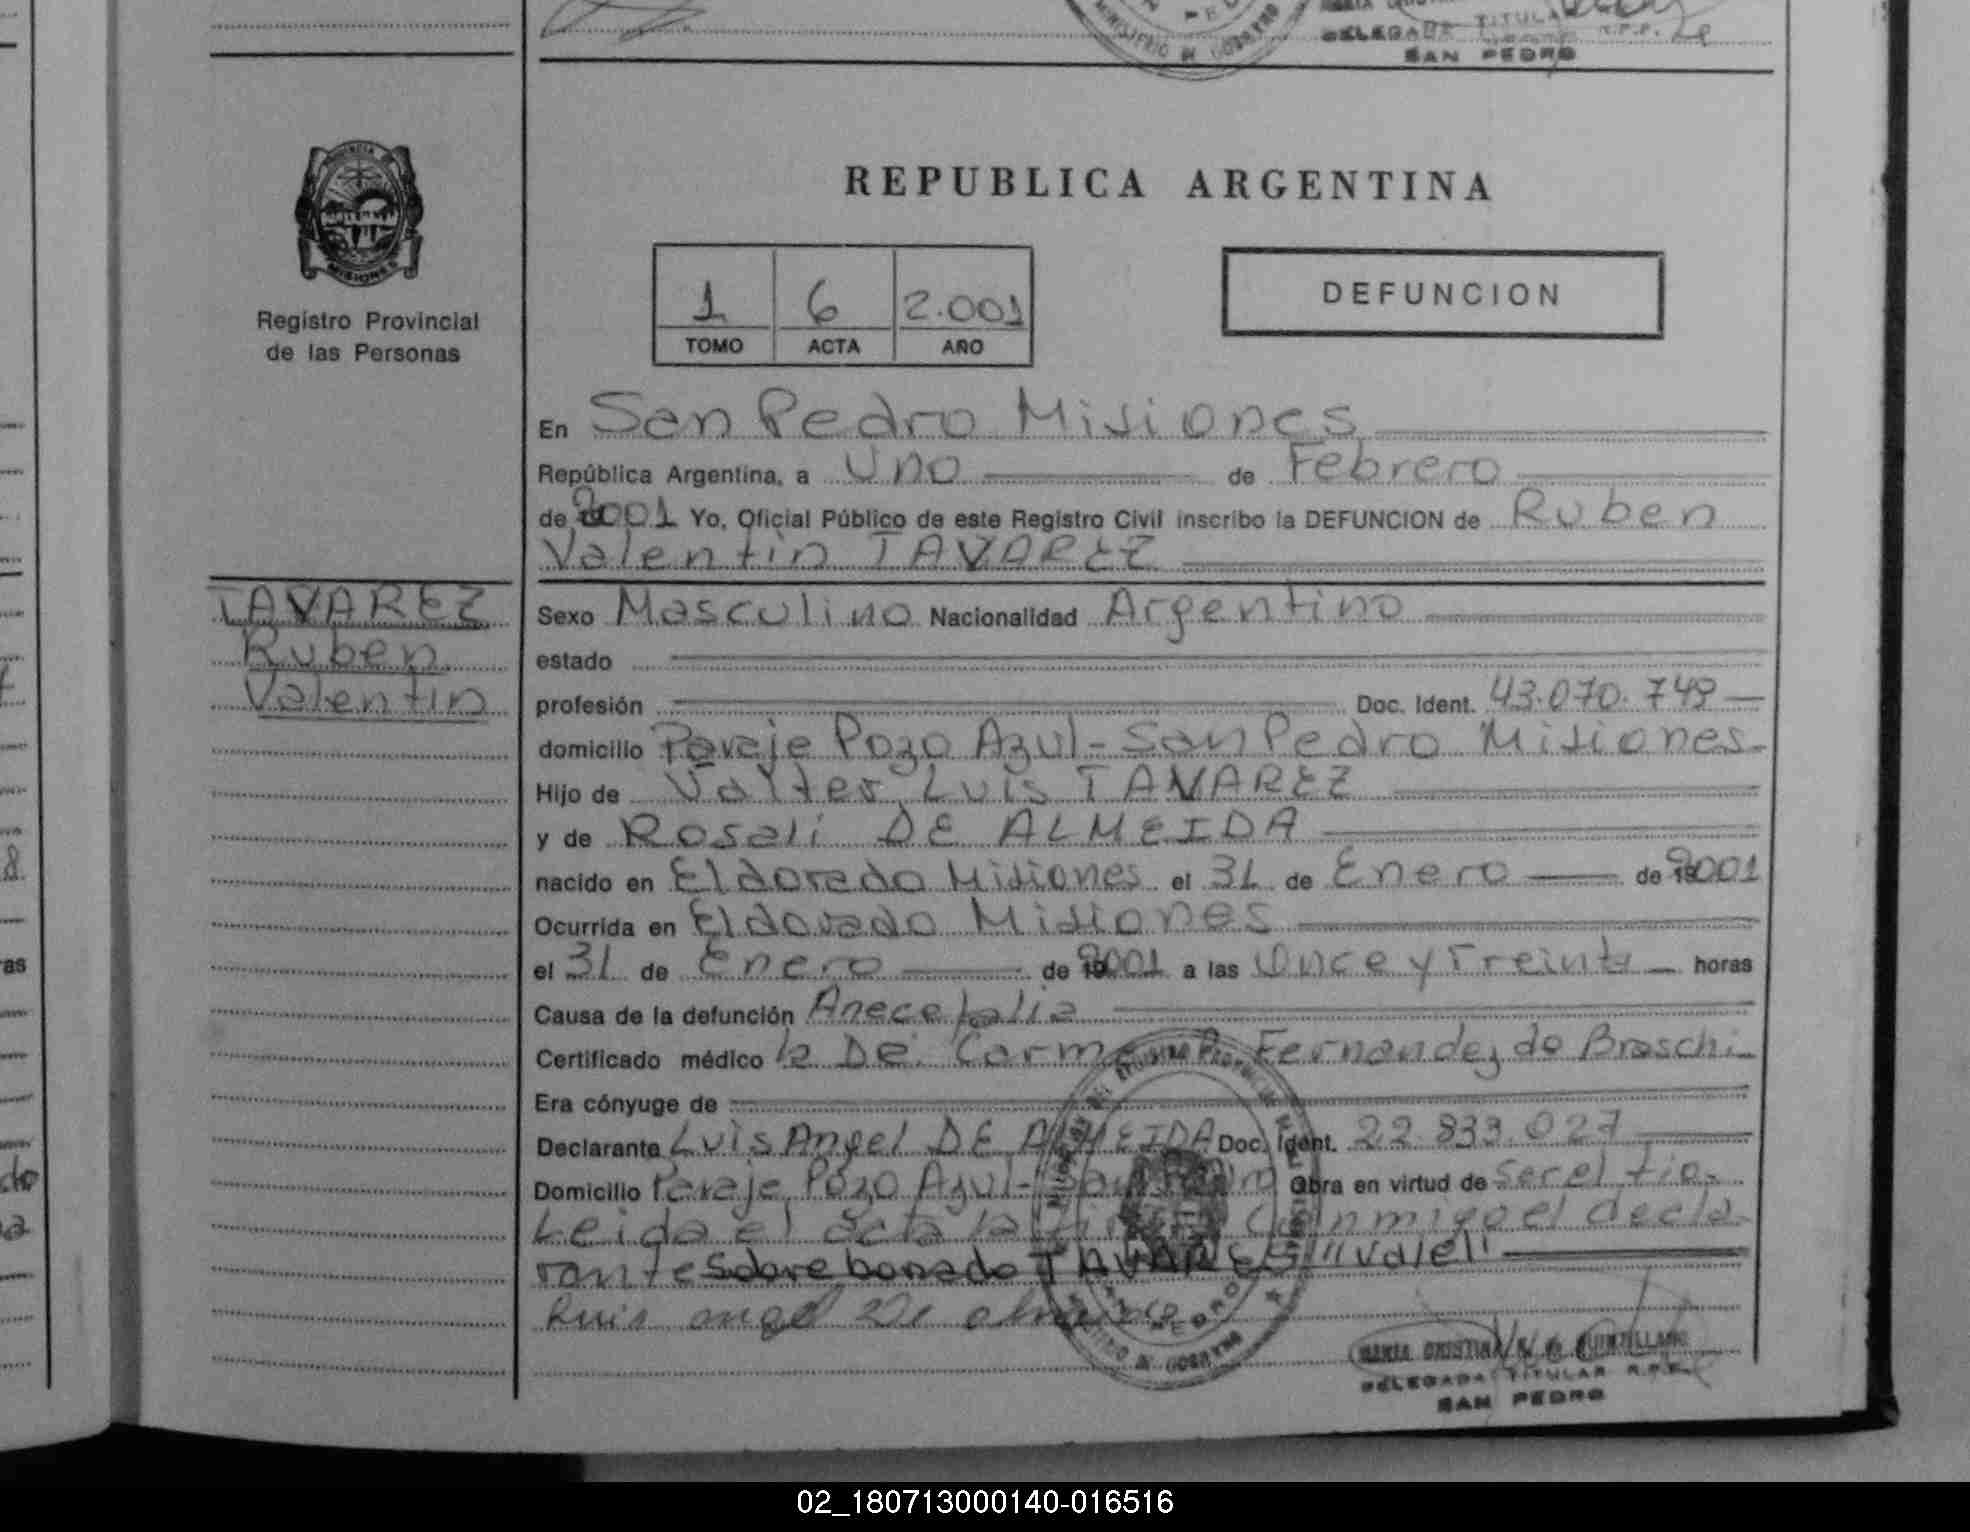 DELEGADA TITULAR R.P.P.
SAN PEDRO
REPUBLICA ARGENTINA
PROVINCIA DE
MISIONES
Registro Provincial
de las Personas
1 6 2.001
TOMO ACTA AÑO
DEFUNCION
En San Pedro Misiones
República Argentina, a Uno de Febrero
de 2001 Yo, Oficial Público de este Registro Civil inscribo la DEFUNCION de Ruben
Valentin TAVAREZ
TAVAREZ
Ruben
Valentin
Sexo Masculino Nacionalidad Argentino
estado
profesión Doc. Ident. 43.070.749
domicilio Paraje Pozo Azul - San Pedro Misiones
Hijo de Valter Luis TAVAREZ
y de Rosali DE ALMEIDA
nacido en Eldorado Misiones el 31 de Enero de 2001
Ocurrida en Eldorado Misiones
el 31 de Enero de 2001 a las Once y Treinta horas
Causa de la defunción Anecefalia
Certificado médico la De. Carmen Fernandez de Braschi
Era cónyuge de
Declarante Luis Angel DE ALMEIDA Doc. Ident. 22.833.027
Domicilio Paraje Pozo Azul - San Pedro Obra en virtud de ser el tio.
Leida el acta la firma Conmigo el decla
rante Sobre borrado TAVAREZ "Vale"
Luis angel De almeida
MINISTERIO DE GOBIERNO
SAN PEDRO
MARIA CRISTINA QUINZILLANO
DELEGADA TITULAR R.P.P.
SAN PEDRO
02_180713000140-016516